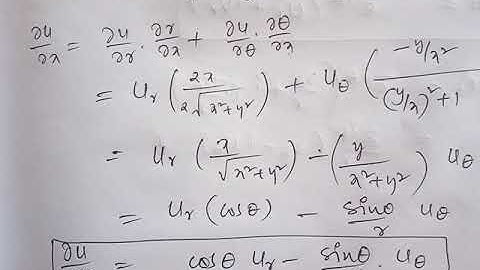 ∂u/∂x = ∂u/∂r · ∂r/∂x + ∂u/∂θ · ∂θ/∂x
= u_r (2x / 2√(x²+y²)) + u_θ (−y/x² / ((y/x)²+1
= u_r (x / √(x²+y²)) − (y / (x²+y²)) u_θ
= u_r (cosθ) − sinθ/r u_θ
∂u/ = cosθ u_r − sinθ · u_θ